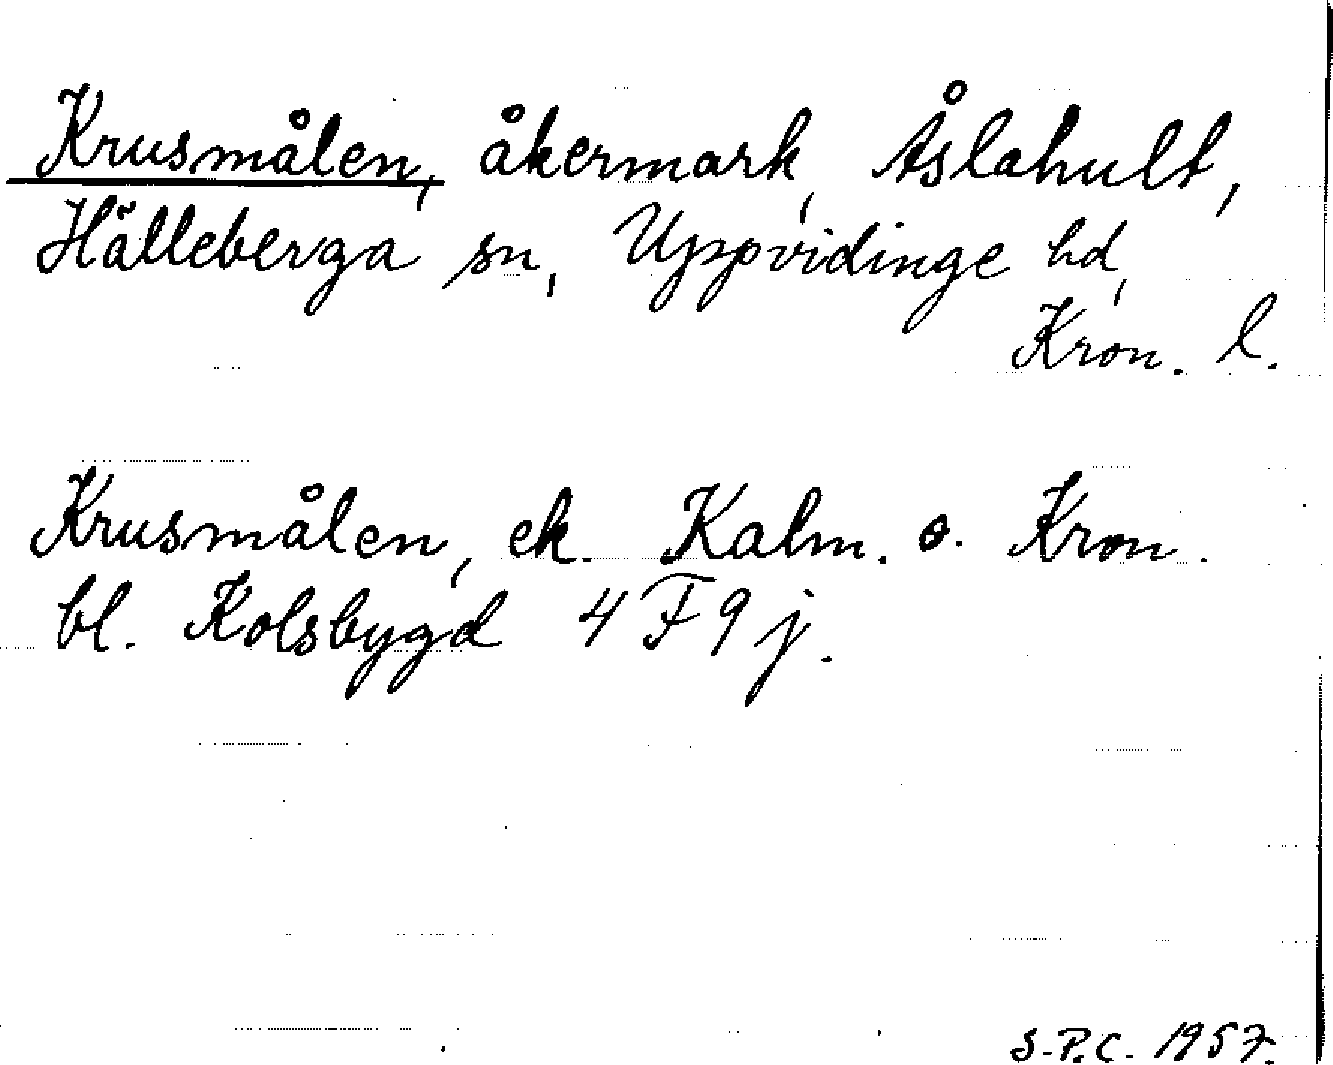 Krusmålen, åkermark, Åslahult,
Hälleberga sn, Uppvidinge hd,
Kron. l.
Krusmålen, ek. Kalm. o. Kron.
bl. Kolsbygd 4 F 9 j.
S.P.C. 1957.